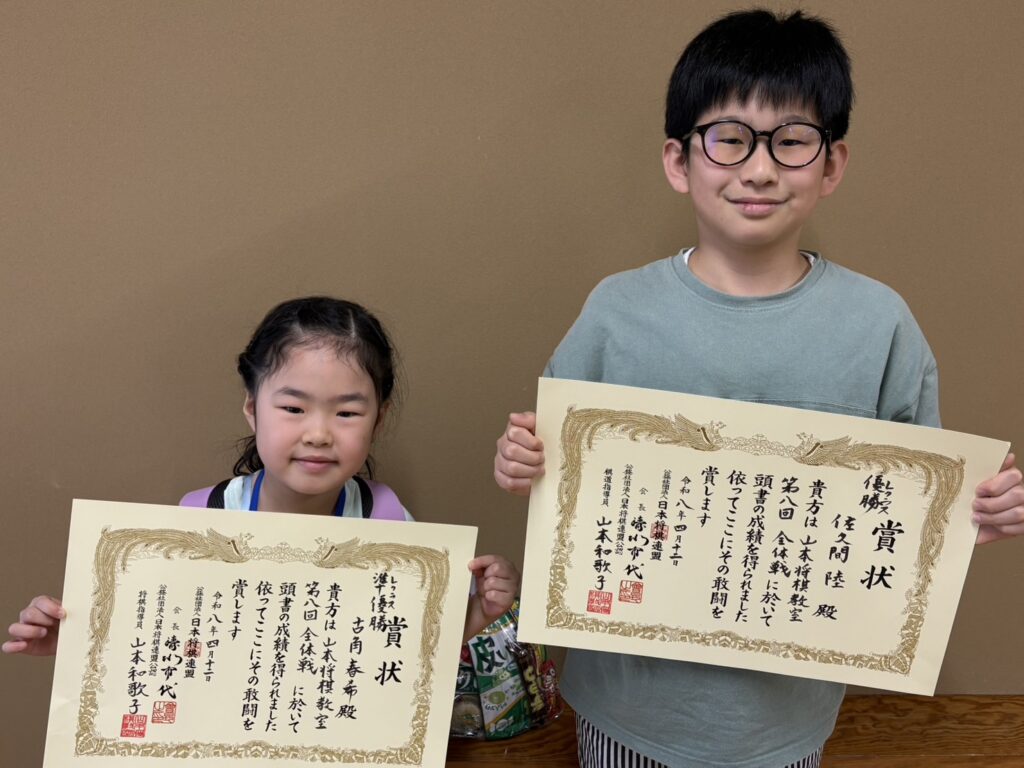 賞状
優勝
佐久間 陸 殿
貴方は山本将棋教室
第八回 全体戦 に於いて
頭書の成績を得られました
依ってここにその敢闘を
賞します
令和八年四月十二日
公益社団法人日本将棋連盟
会長
公益社団法人日本将棋連盟公認
棋道指導員 山本和歌子
賞状
準優勝
古角 春希 殿
貴方は山本将棋教室
第八回 全体戦 に於いて
頭書の成績を得られました
依ってここにその敢闘を
賞します
令和八年四月十二日
公益社団法人日本将棋連盟
会長
公益社団法人日本将棋連盟公認
将棋指導員 山本和歌子